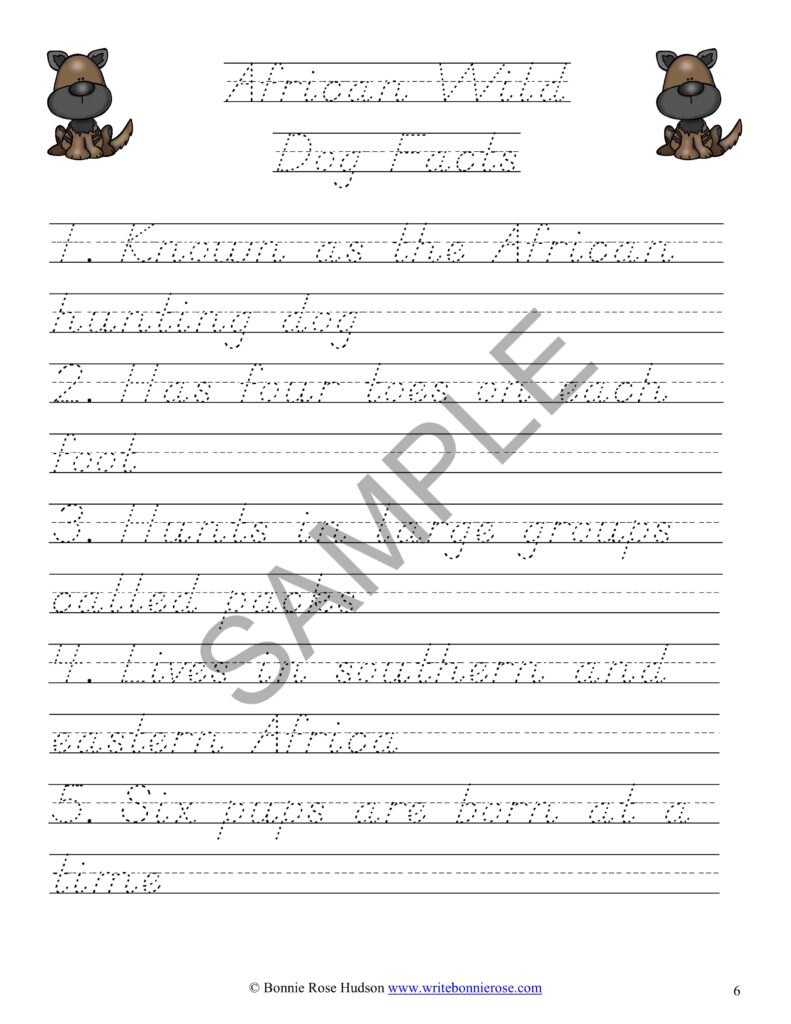 African Wild
Dog Facts
1. Known as the African
hunting dog
2. Has four toes on each
foot
3. Hunts in large groups
called packs
4. Lives in southern and
eastern Africa
5. Six pups are born at a
time
SAMPLE
© Bonnie Rose Hudson www.writebonnierose.com
6